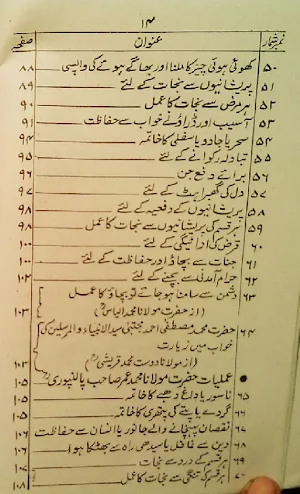 ۱۴
نمبر شمار عنوان صفحہ
۵۰ کھوئی ہوئی چیز کا ملنا اور بھاگے ہوئے کی واپسی ۸۸
۵۱ پریشانیوں سے نجات کے لئے ۸۹
۵۲ ہر مرض سے نجات کا عمل ۹۰
۵۳ آسیب اور ڈراؤنے خواب سے حفاظت ۹۱
۵۴ سحر یا جادو یا سفلی کا خاتمہ ۹۴
۵۵ تبادلہ رکوانے کے لئے ۹۵
۵۶ برائے دفع جن ۹۶
۵۷ دل کی گھبراہٹ کے لئے ۹۷
۵۸ پریشانیوں کے دفعیہ کے لئے ۹۸
۵۹ ہر قسم کی پریشانیوں سے نجات کا عمل ۹۸
۶۰ قرض کی ادائیگی کے لئے ۱۰۰
۶۱ جنات سے بچاؤ اور حفاظت کے لئے ۱۰۰
۶۲ حرام آمدنی سے بچنے کے لئے ۱۰۲
۶۳ دشمن سے سامنا ہو جائے تو بچاؤ کا عمل
(از حضرت مولانا محمد الیاسؒ) ۱۰۳
۶۴ حضرت محمد مصطفیٰ احمد مجتبیٰ سید الانبیاء والمرسلین کی
خواب میں زیارت
(از مولانا دوست محمد قریشیؒ) ۱۰۳
● عملیات حضرت مولانا محمد عمر صاحب پالنپوریؒ ۱۰۵
۶۵ ناسور یا داغ دھبے کا خاتمہ ۱۰۵
۶۶ گردے یا پتے کی پتھری کا خاتمہ ۱۰۵
۶۷ نقصان پہنچانے والے جانور یا انسان سے حفاظت ۱۰۶
۶۸ دین سے غافل یا سیدھی راہ سے بھٹکا ہوا ۱۰۶
۶۹ ہر قسم کے درد سے نجات ۱۰۷
۷۰ ہر قسم کی تنگی سے نجات کا عمل ۱۰۸